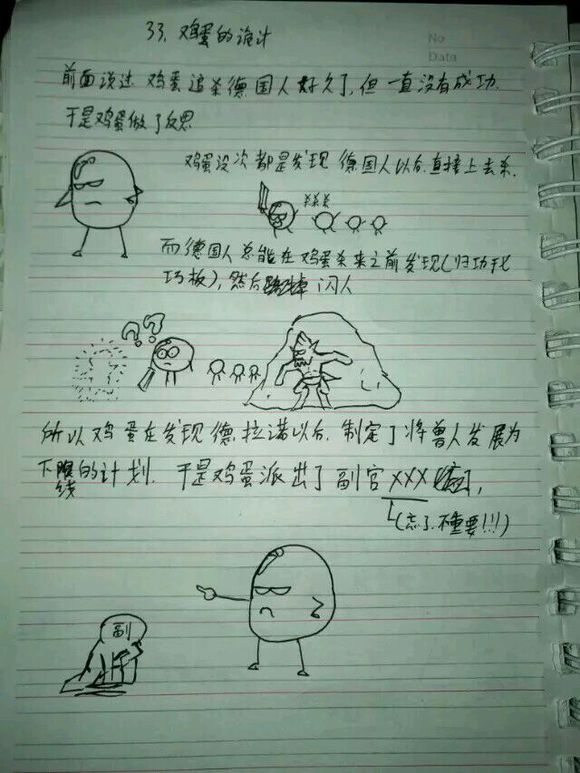 33. 鸡蛋的诡计
No
Data
前面说过 鸡蛋追杀德国人好久了,但一直没有成功.
于是鸡蛋做了反思
鸡蛋没次都是发现 德国人以后直接上去杀.
×××
而德国人总能在鸡蛋杀来之前发现(归功于
巧板),然后 闪人
???
所以鸡蛋在发现德拉诺以后.制定了将兽人发展为
下线的计划.于是鸡蛋派出了副官×××
(忘了.不重要!!!)
副